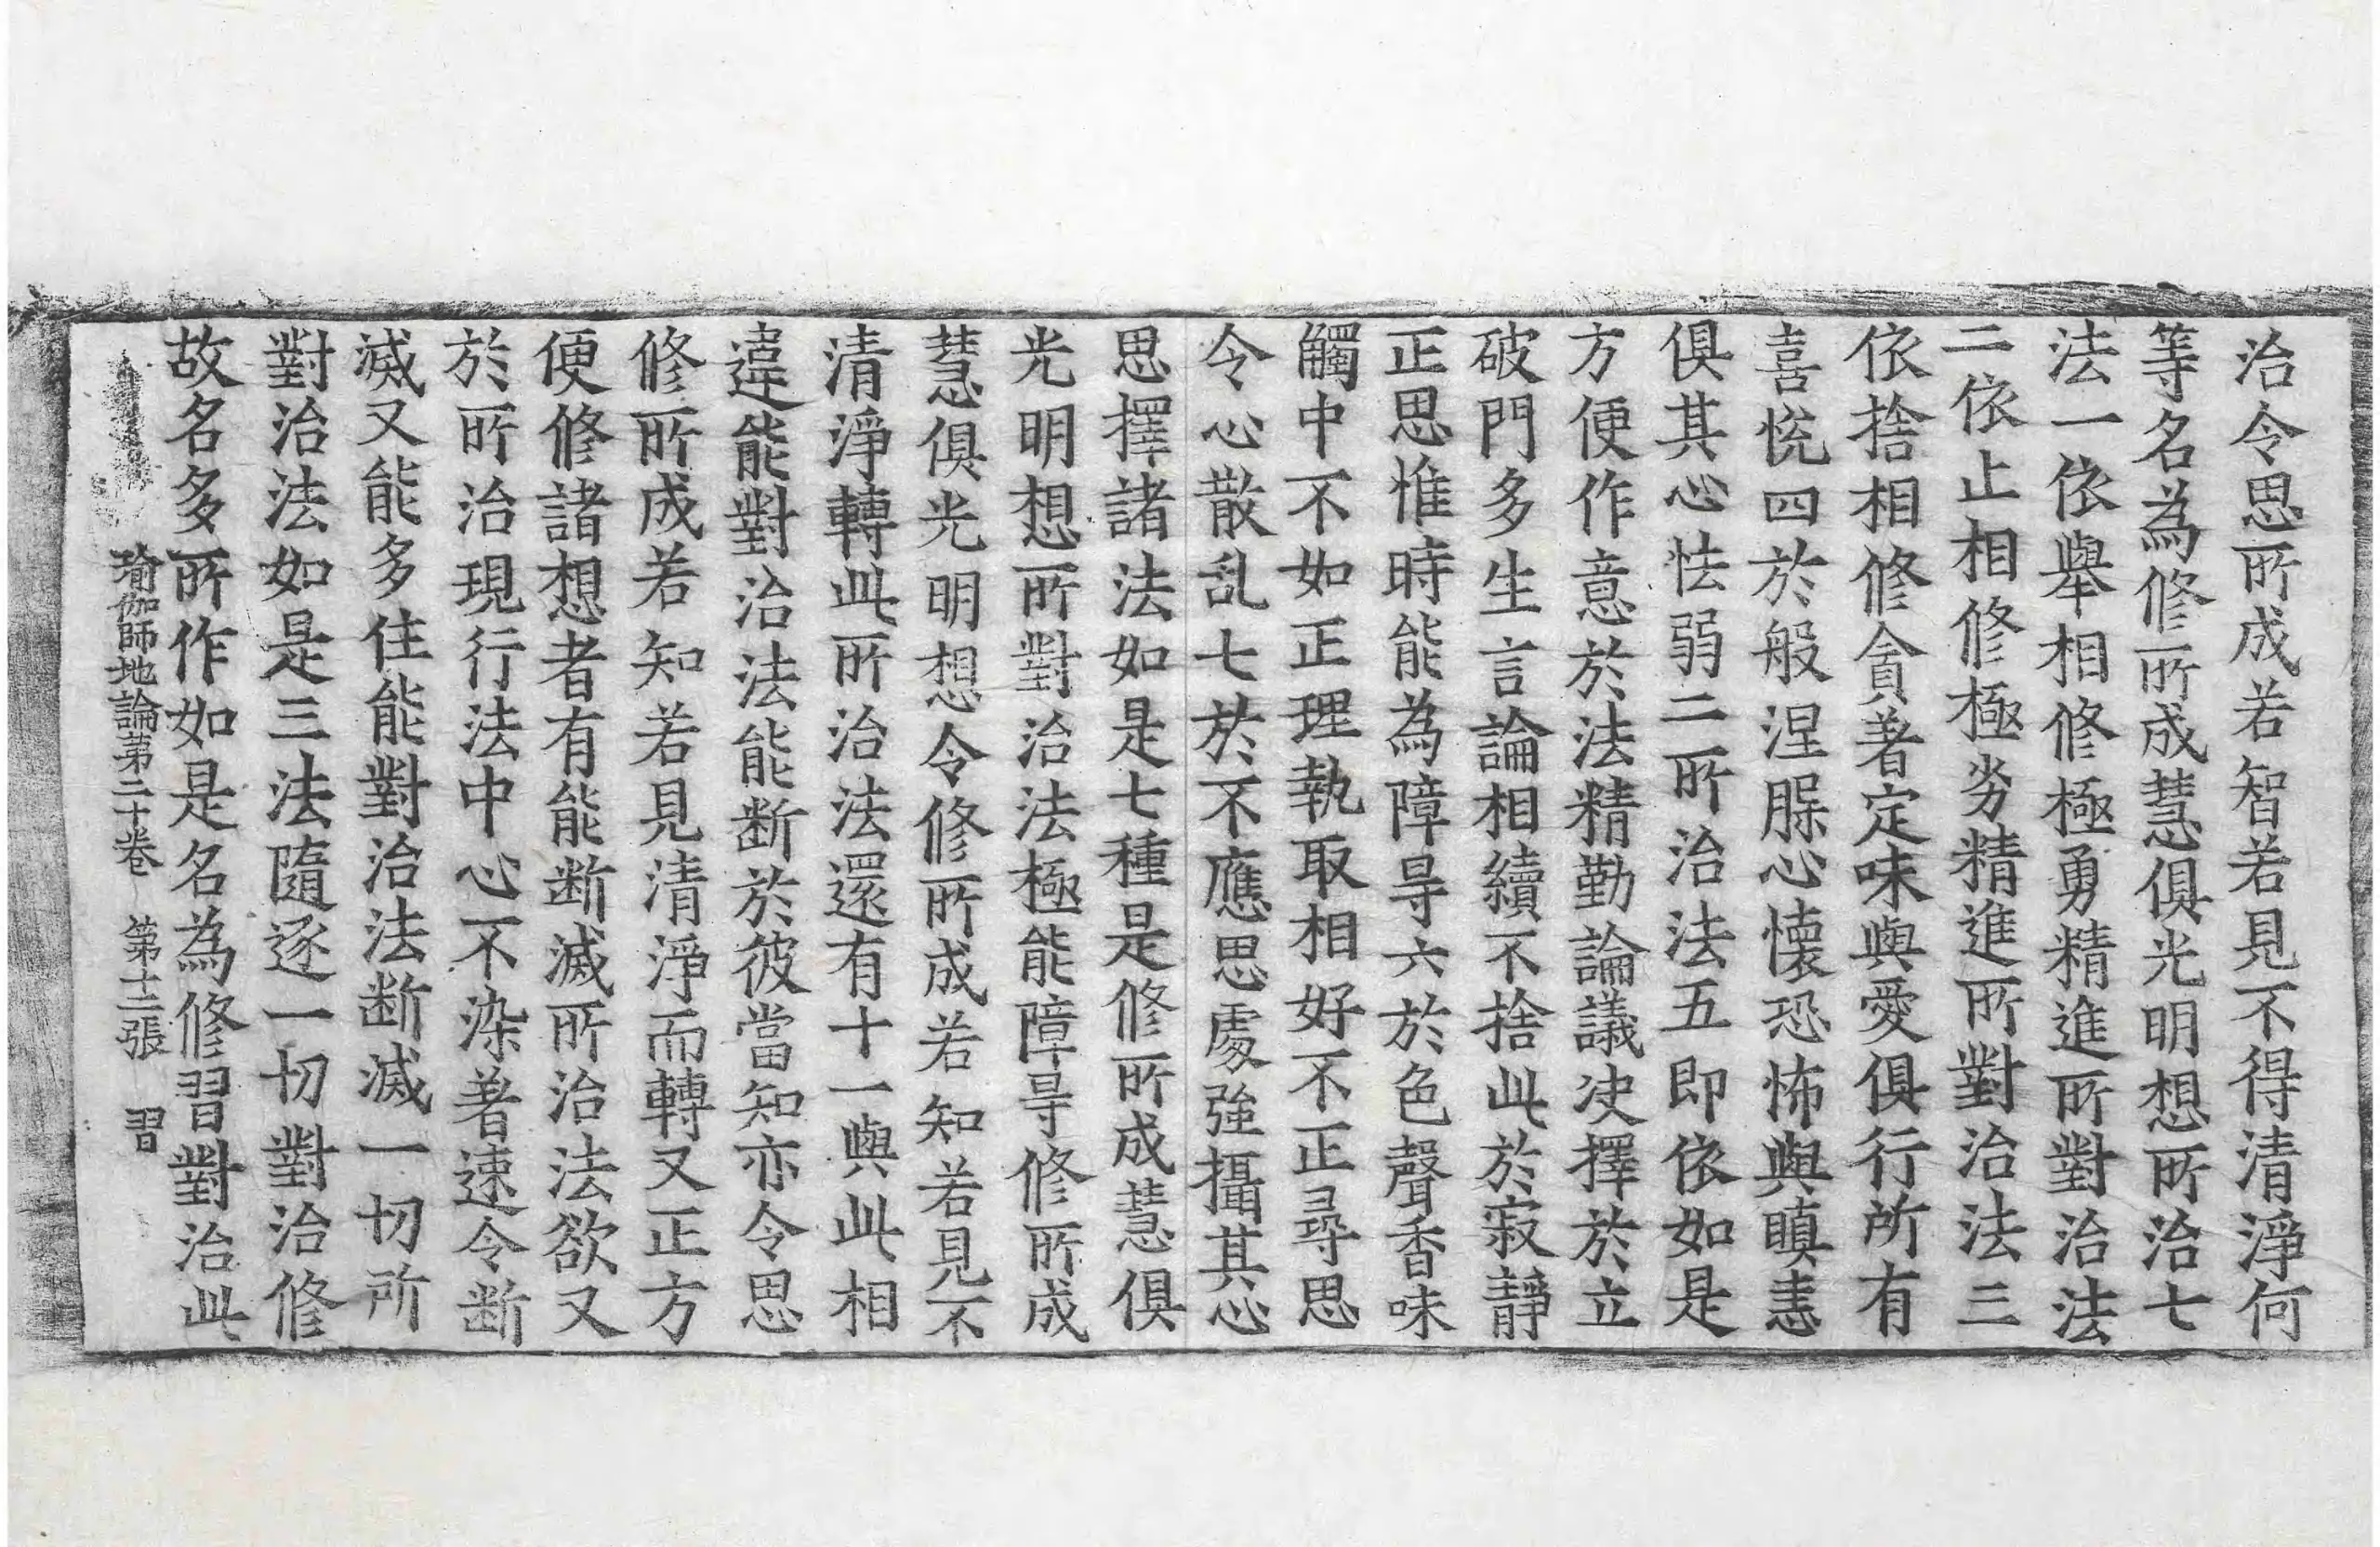 治令思所成若智若見不得清淨何
等名為修所成慧俱光明想所治七
法一依舉相修極勇精進所對治法
二依止相修極劣精進所對治法三
依捨相修貪著定味與愛俱行所有
喜恱四於般涅脲心懐恐怖與瞋恚
俱其心怯弱二所治法五即依如是
方便作意於法精勤論議决擇於立
破門多生言論相續不捨此於寂靜
正思惟時能為障㝵六於色聲香味
觸中不如正理執取相好不正尋思
令心散乱七於不應思處強攝其心
思擇諸法如是七種是修所成慧俱
光明想所對治法極能障㝵修所成
慧俱光明想令修所成若知若見不
清淨轉此所治法還有十一與此相
違能對治法能断於彼當知亦令思
修所成若知若見清淨而轉又正方
便修諸想者有能断滅所治法欲又
於所治現行法中心不染著速令断
滅又能多住能對治法断滅一切所
對治法如是三法隨逐一切對治修
故名多所作如是名為修習對治此
瑜伽師地論第二十卷 第十二張 習